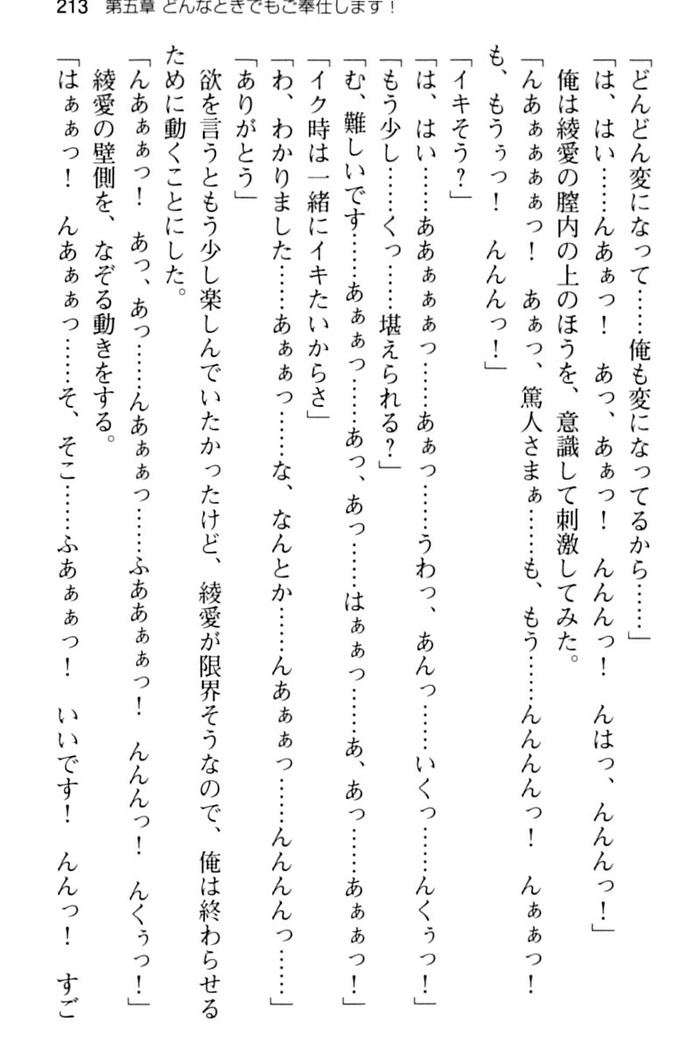 213 第五章 どんなときでもご奉仕します！
「どんどん変になって……俺も変になってるから……」
「は、はい……んあぁっ！　あっ、あぁっ！　んんんっ！　んはっ、んんんっ！」
　俺は綾愛の膣内の上のほうを、意識して刺激してみた。
「んあぁぁぁぁっ！　あぁっ、篤人さまぁ……も、もう……んんんんっ！　んぁぁっ！
も、もうぅっ！　んんんっ！」
「イキそう？」
「は、はい……ああぁぁぁっ……あぁっ……うわっ、あんっ……いくっ……んくぅっ！」
「もう少し……くっ……堪えられる？」
「む、難しいです……あぁぁっ……あっ、あっ……はぁぁっ……あ、あっ……あぁぁっ！」
「イク時は一緒にイキたいからさ」
「わ、わかりました……あぁぁっ……な、なんとか……んあぁぁっ……んんんんっ……」
「ありがとう」
　欲を言うともう少し楽しんでいたかったけど、綾愛が限界そうなので、俺は終わらせる
ために動くことにした。
「んあぁぁっ！　あっ、あっ……んあぁぁっ……ふああぁぁっ！　んんんっ！　んくぅっ！」
　綾愛の壁側を、なぞる動きをする。
「はぁぁっ！　んあぁぁっ……そ、そこ……ふあぁぁっ！　いいです！　んんっ！　すご